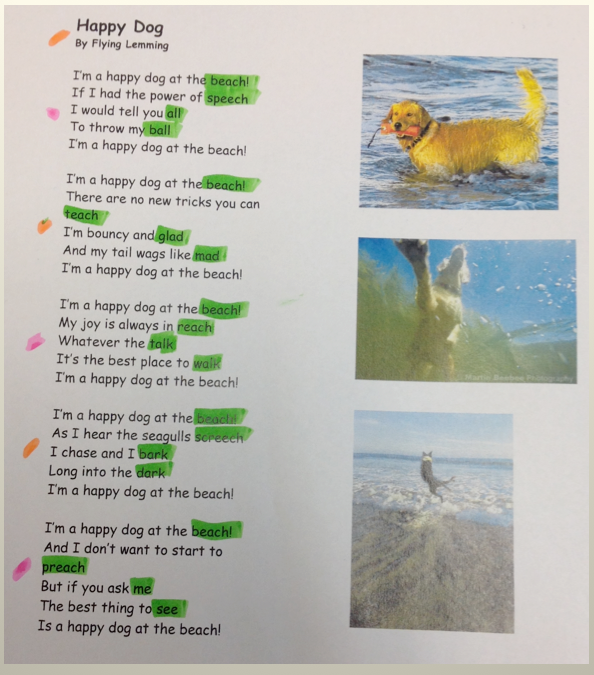 Happy Dog
By Flying Lemming
I'm a happy dog at the beach!
If I had the power of speech
I would tell you all
To throw my ball
I'm a happy dog at the beach!
I'm a happy dog at the beach!
There are no new tricks you can
teach
I'm bouncy and glad
And my tail wags like mad
I'm a happy dog at the beach!
I'm a happy dog at the beach!
My joy is always in reach
Whatever the talk
It's the best place to walk
I'm a happy dog at the beach!
I'm a happy dog at the beach!
As I hear the seagulls screech
I chase and I bark
Long into the dark
I'm a happy dog at the beach!
I'm a happy dog at the beach!
And I don't want to start to
preach
But if you ask me
The best thing to see
Is a happy dog at the beach!
Photography